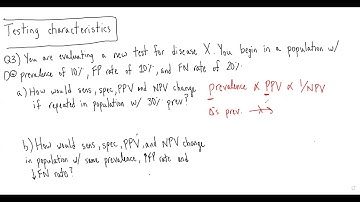 Testing characteristics
Q3) You are evaluating a new test for disease X. You begin in a population w/
prevalence of 10%, FP rate of 10%, and FN rate of 20%.
a) How would sens, spec, PPV and NPV change
if repeated in population w/ 30% prev?
prevalence ∝ PPV ∝ 1/NPV
prev.
b) How would sens, spec, PPV, and NPV change
in population w/ same prevalence, ↑FP rate and
↓FN rate?